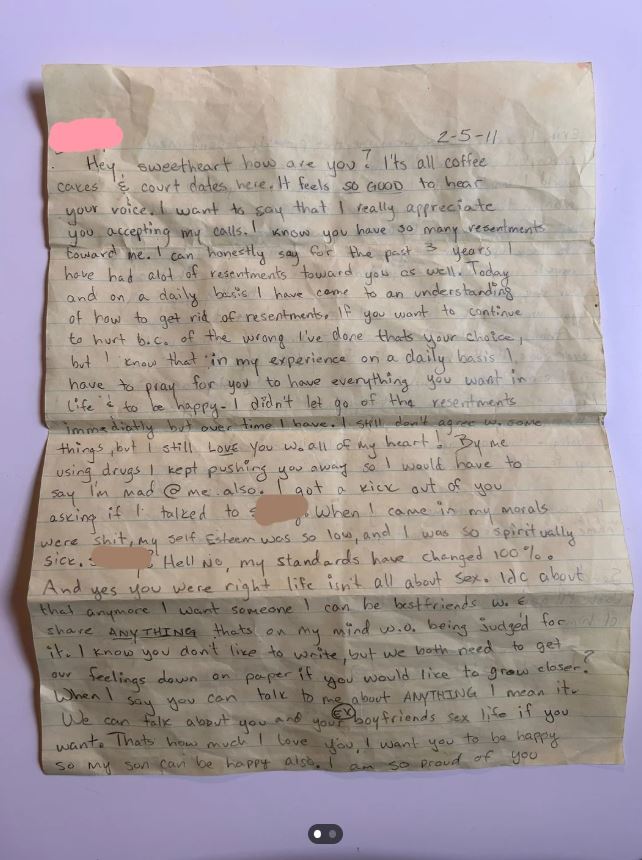 2-5-11
Hey sweetheart how are you? It's all coffee
cakes & court dates here. It feels SO GOOD to hear
your voice. I want to say that I really appreciate
you accepting my calls. I know you have so many resentments
toward me. I can honestly say for the past 3 years I
have had alot of resentments toward you as well. Today
and on a daily basis I have come to an understanding
of how to get rid of resentments. If you want to continue
to hurt b.c. of the wrong I've done thats your choice,
but I know that in my experience on a daily basis I
have to pray for you to have everything you want in
life & to be happy. I didn't let go of the resentments
immediatly but over time I have. I still don't agree w. some
things, but I still LOVE you w. all of my heart! By me
using drugs I kept pushing you away so I would have to
say I'm mad @ me also. I got a kick out of you
asking if I talked to . When I came in my morals
were shit, my self Esteem was so low, and I was so spiritually
sick. ? Hell NO, my standards have changed 100%.
And yes you were right life isn't all about sex. Idc about
that anymore I want someone I can be bestfriends w. &
share ANYTHING thats on my mind w.o. being judged for
it. I know you don't like to write, but we both need to get
our feelings down on paper if you would like to grow closer?
When I say you can talk to me about ANYTHING I mean it.
We can talk about you and your EX boyfriends sex life if you
want. Thats how much I love you, I want you to be happy
so my son can be happy also. I am so proud of you